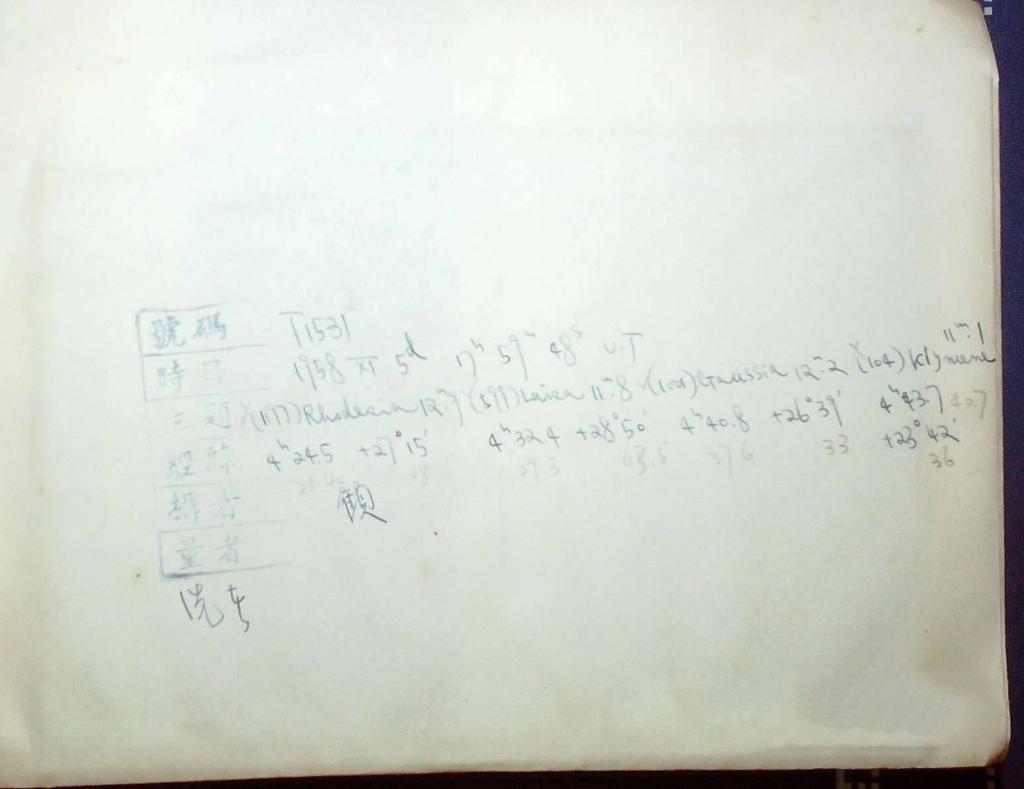 號碼 T1531
時日 1958 XI 5d 17h 59m 48s U.T
11m.1
(1197) Rhodesia 12m.9 (599) Luisa 11m.8 (1001) Gaussia 12m.2 (104) Klymene
經緯 4h24.5 +27°15′ 4h32.4 +28°50′ 4h40.8 +26°39′ 4h43.7 40.7
08 29.3 43.5 37.6 33 +23°42′
36
攝者 顧
量者